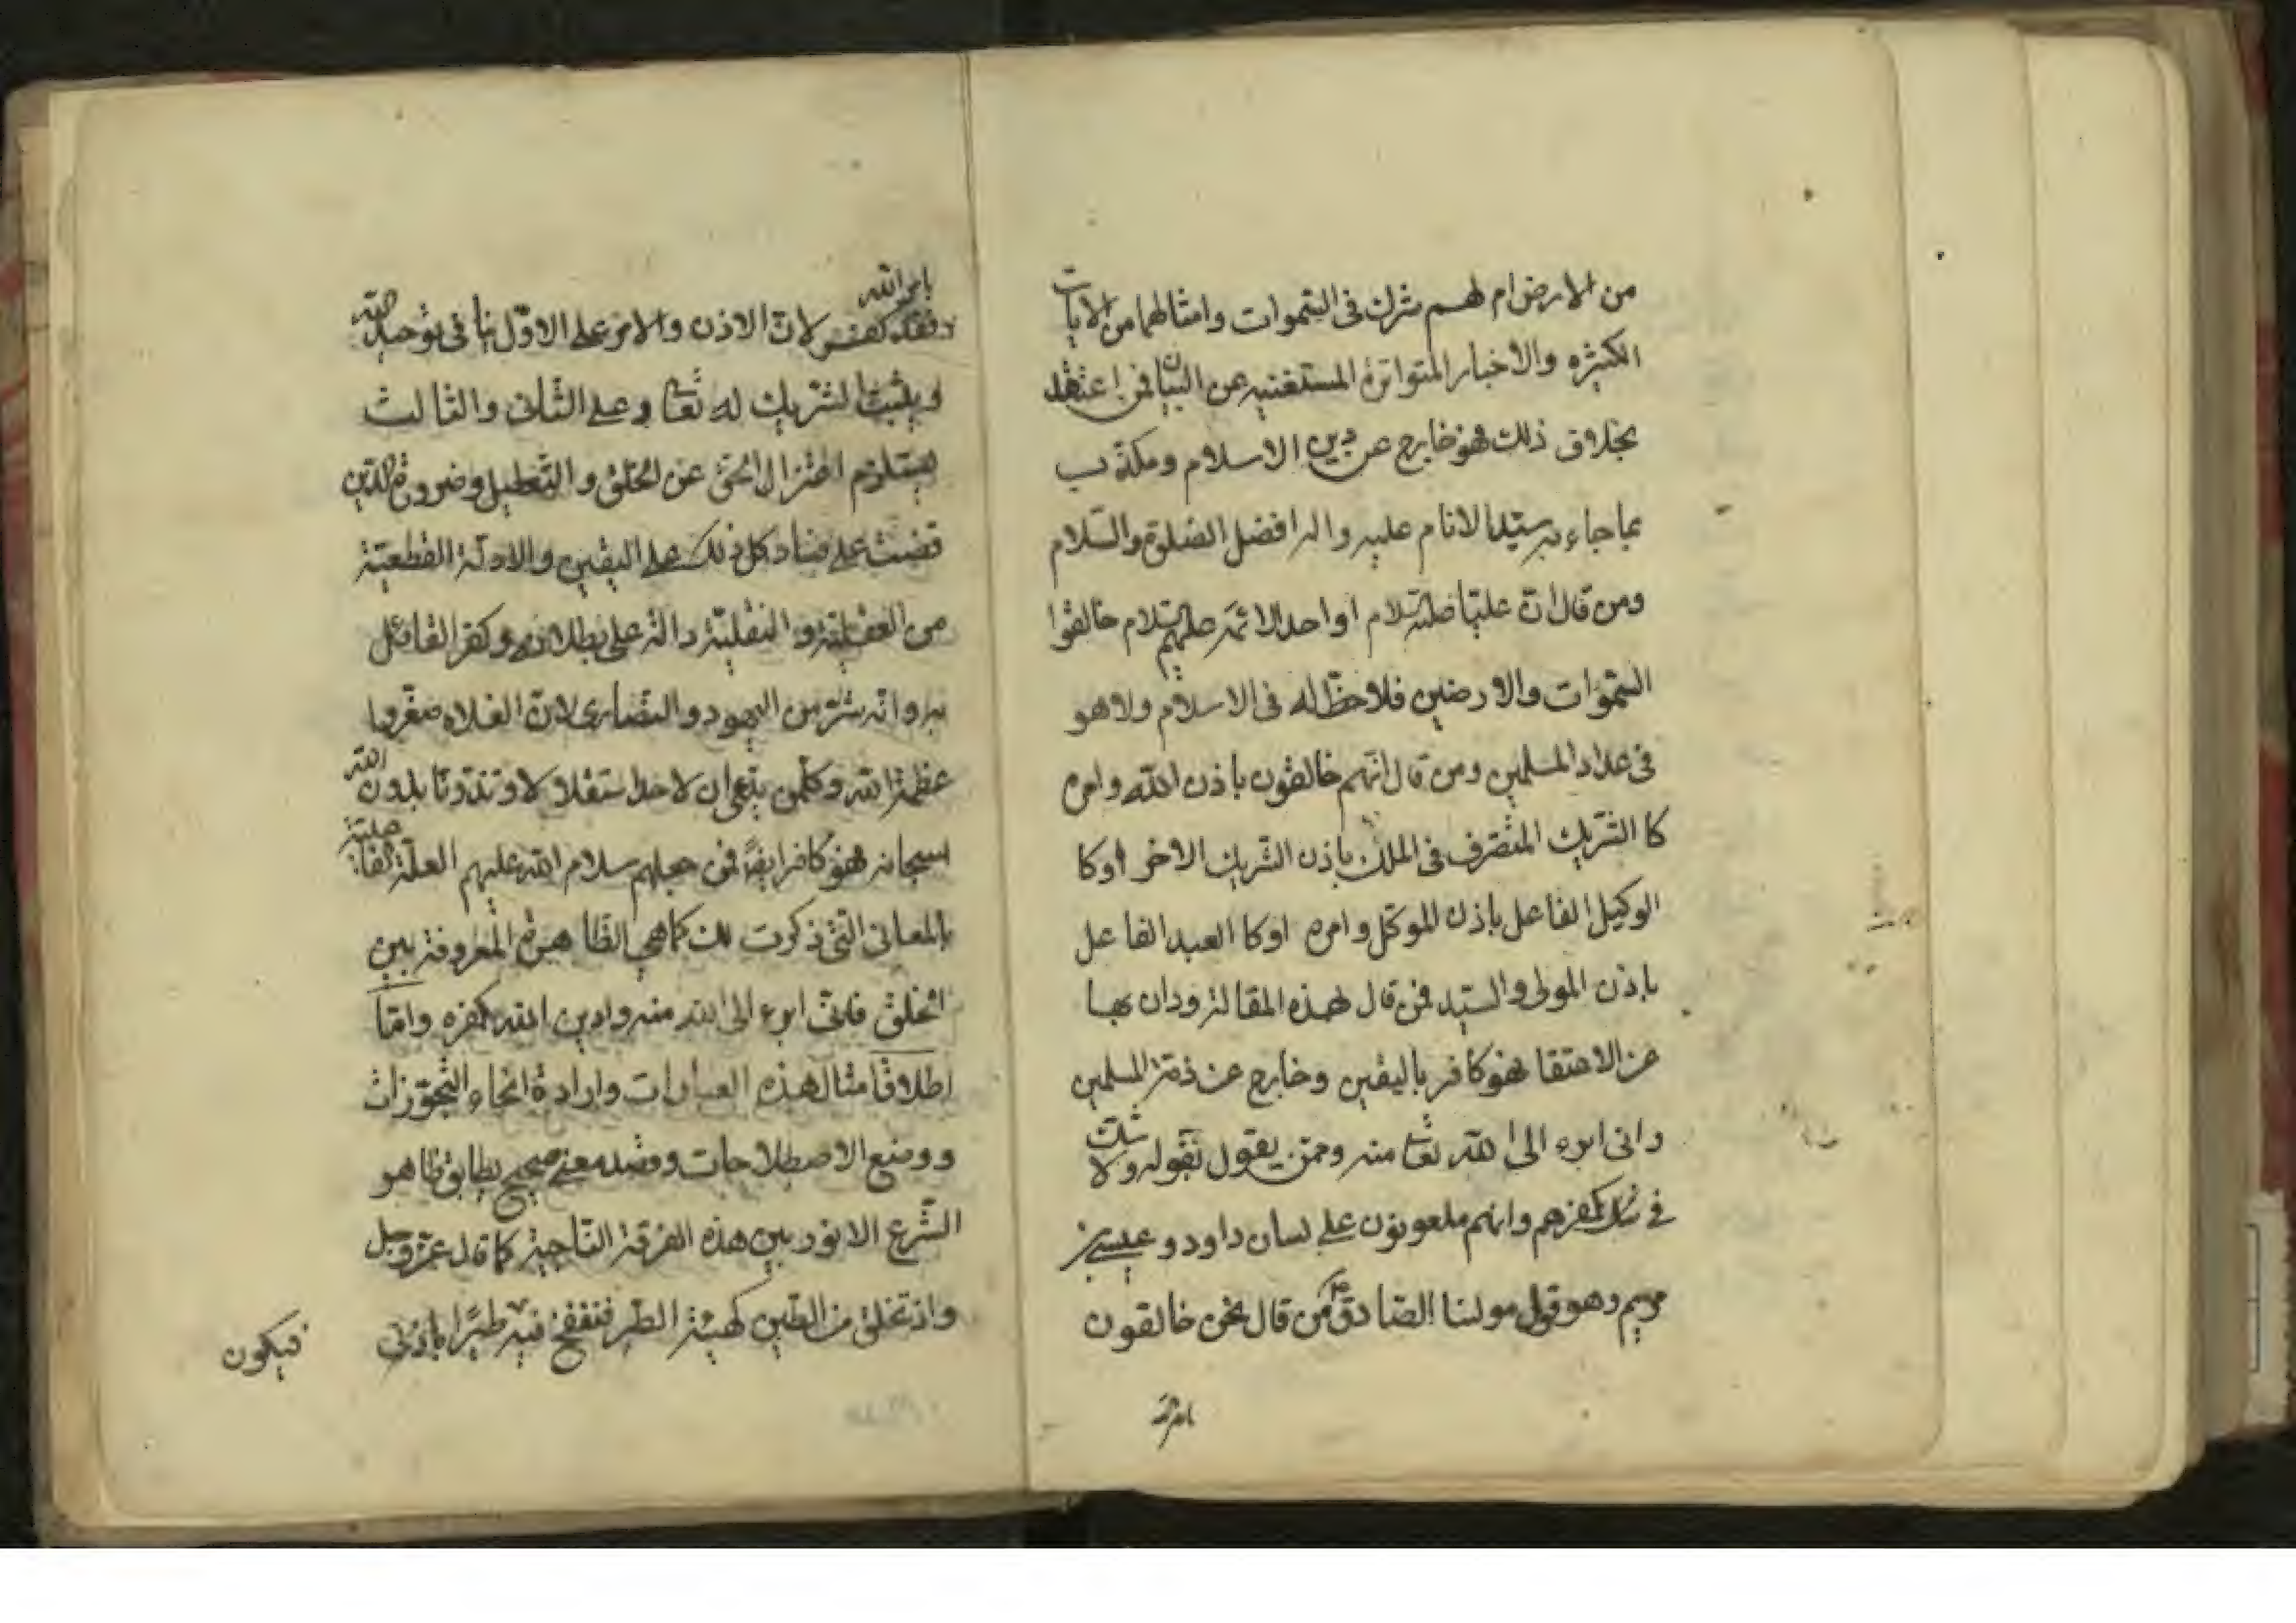 من الارض ام لهم شرك فى السموات وامثالهما من الايات
الكثيره والاخبار المتواترة المستغنيه عن البيان فمن اعتقد
بخلاف ذلك فهو خارج عن دين الاسلام ومكذب
بما جاء به سيد الانام عليه واله افضل الصلوة والسلام
ومن قال ان عليا عليه السلام او احد الائمه عليهم السلام خالقوا
السموات والارضين فلا حظ له فى الاسلام ولا هو
فى عداد المسلمين ومن قال انهم خالقون باذن الله وامره
كا الشريك المتصرف فى الملك باذن الشريك الاخر اوكا
الوكيل الفاعل باذن الموكل وامره اوكا العبد الفاعل
باذن المولى والسيد فمن قال لهذه المقالة ودان بها
عن الاعتقا فهو كافر باليقين وخارج عن ذمة المسلمين
وانى ابرء الى الله تعا منه وممن يقول بقوله ولا شك
فى كفرهم وانهم ملعونون على لسان داود وعيسى بن
مريم وهو قول مولنا الصادق ع من قال نحن خالقون
بامر الله
بامر الله
فقد كفر لان الاذن والامر على الاول ينافى توحيد الله
ويثبت الشريك له تعا وعلى الثانى والثالث
يستلزم اعتزال الحق عن الخلق والتعطيل وضرورة الدين
قضت على فساد كل ذلك على اليقين والادلة القطعية
من العقلية والنقلية دالة على بطلانه وكفر القائل
به وانه شر من اليهود والنصارى لان الغلاه صغروا
عظمة الله وكل من يدعى ان لاحد استقلالا وتذوتا بدون الله
سبحانه فهو كافر ايضا فمن جعلهم سلام الله عليهم العلة الفاعلية
بالمعانى التى ذكرت لك كما هى الظاهرة المعروفة بين
الخلق فانى ابرء الى الله منه وادين الله بكفره واما
اطلاق امثال هذه العبارات وارادة انحاء التجوزات
ووضع الاصطلاحات وقصد معنى صحيح يطابق ظاهر
الشرع الانور بين هذه الفرقة الناجية كما قال عز وجل
واذ تخلق من الطين كهيئة الطير فتنفخ فيه طيرا باذنى
فيكون